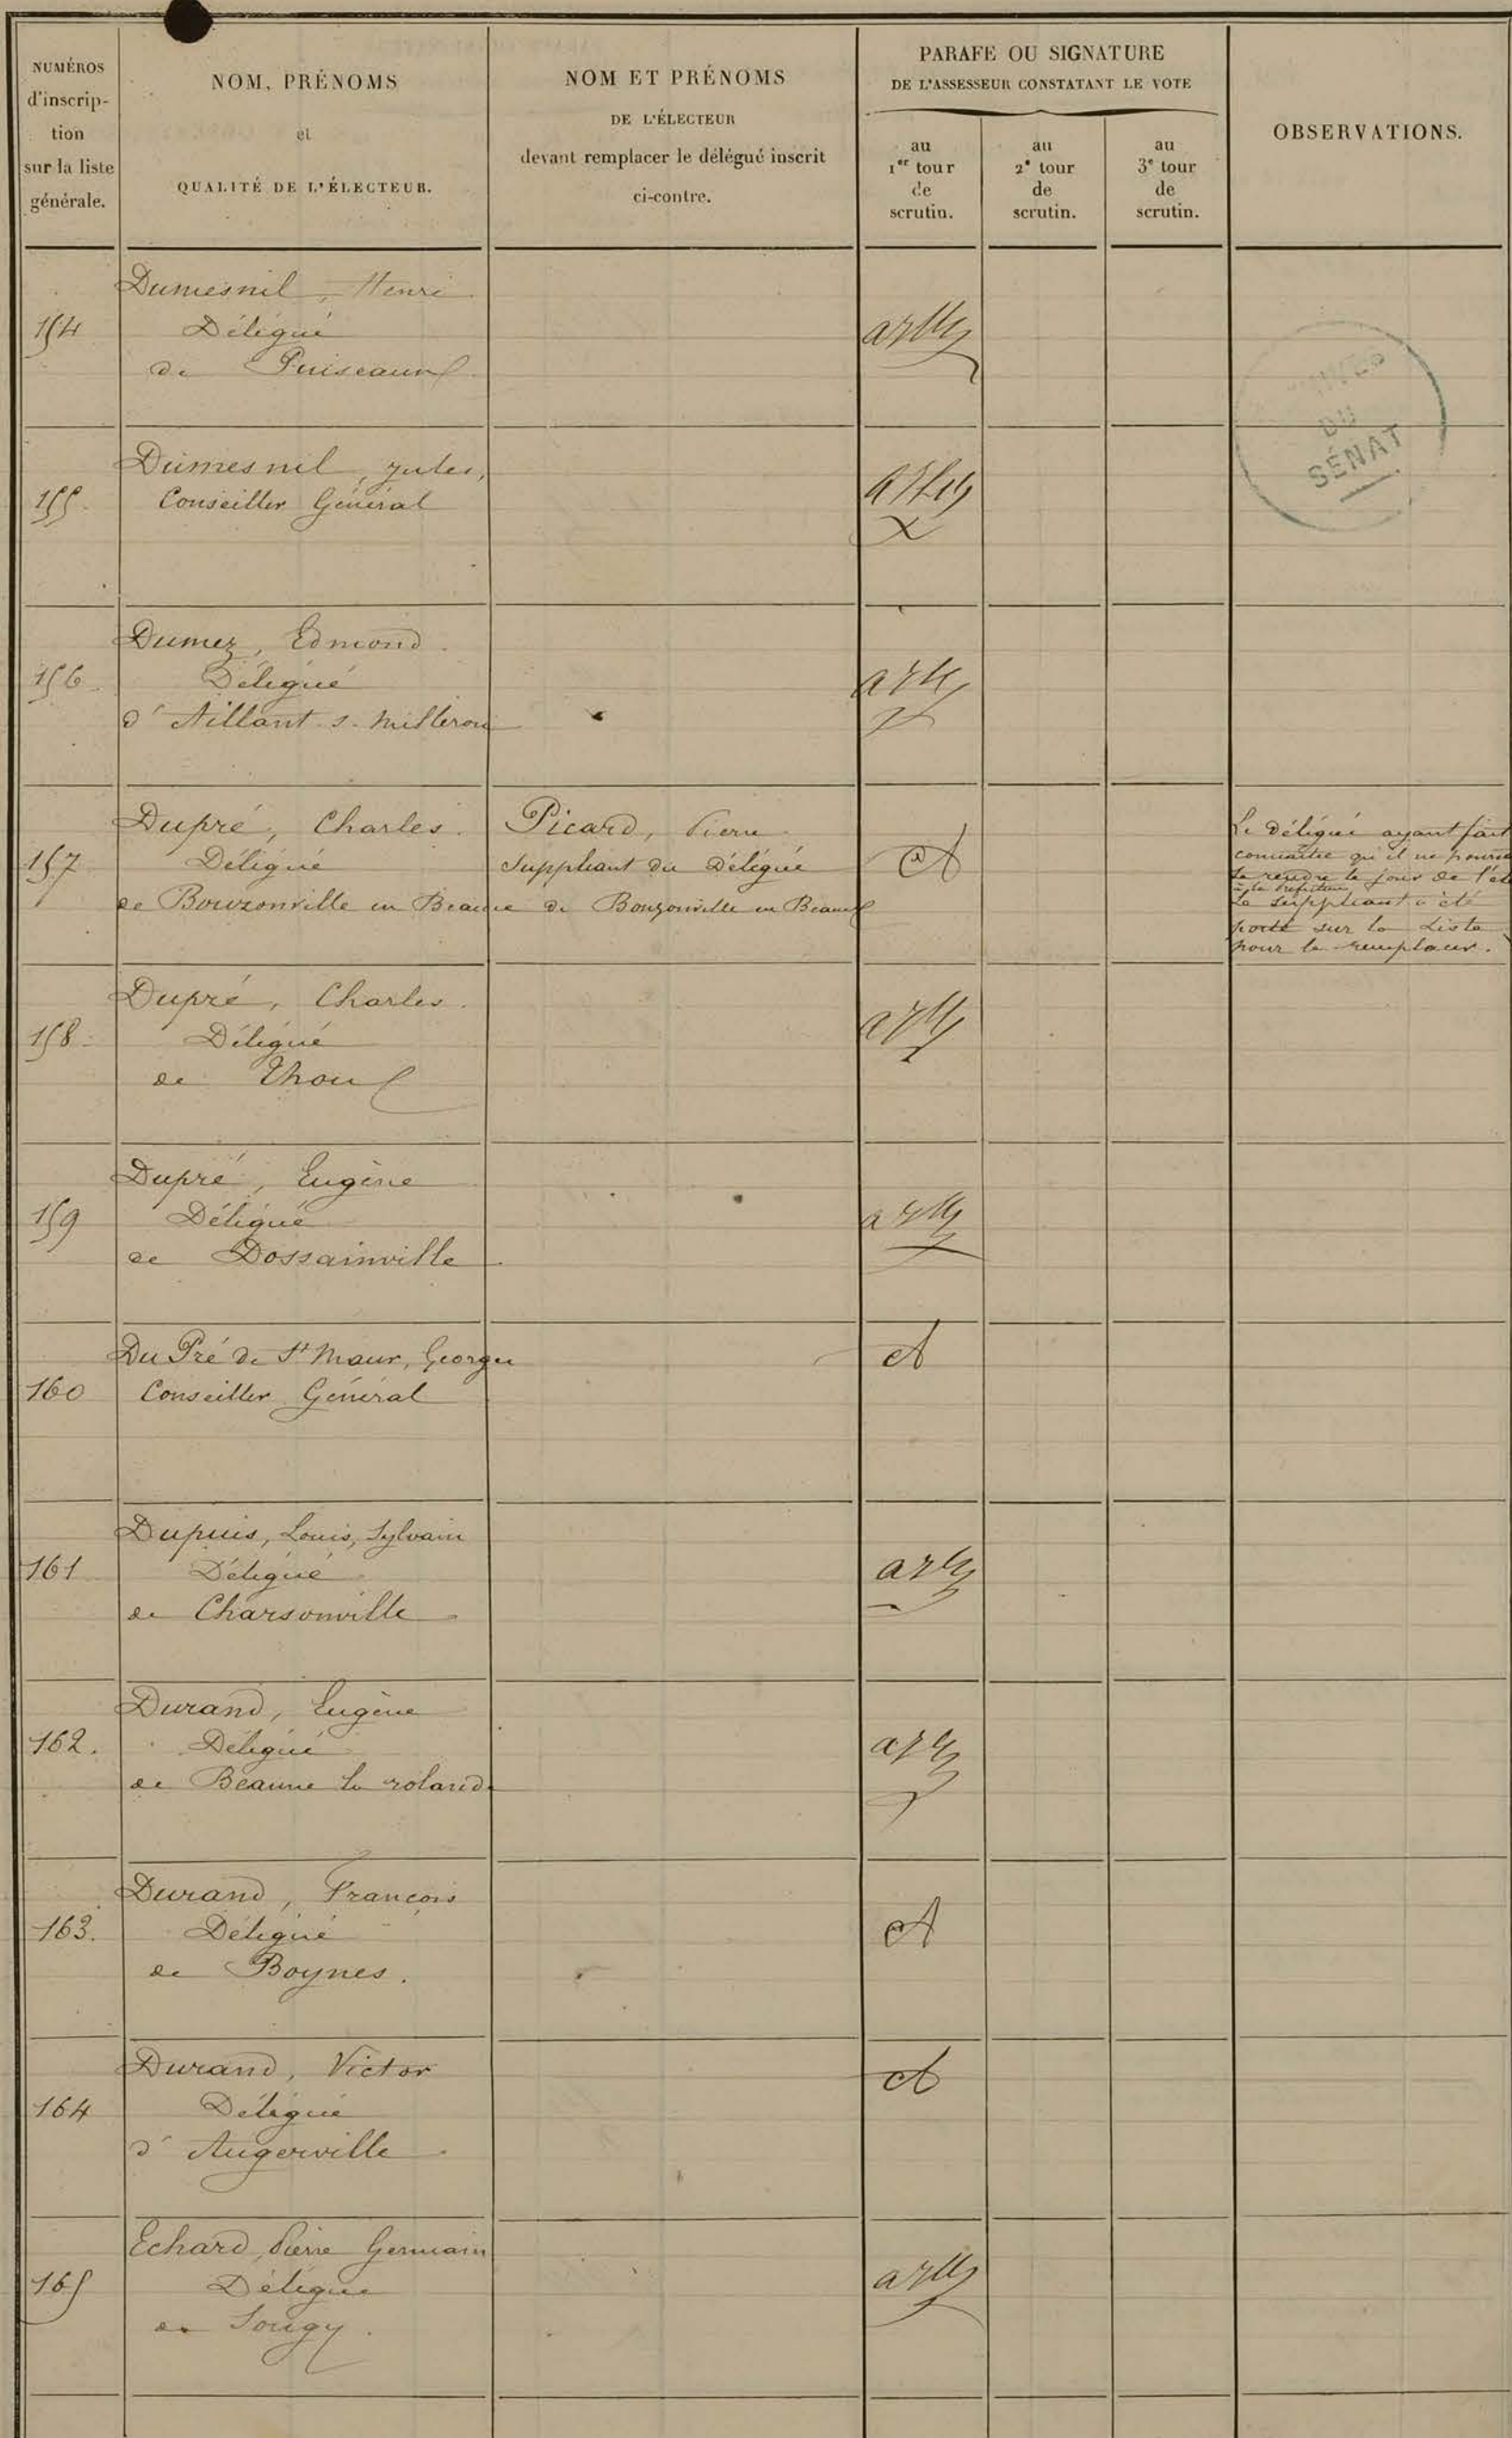 NUMÉROS
d'inscrip-
tion
sur la liste
générale.
NOM, PRÉNOMS
et
QUALITÉ DE L'ÉLECTEUR.
NOM ET PRÉNOMS
DE L'ÉLECTEUR
devant remplacer le délégué inscrit
ci-contre.
PARAFE OU SIGNATURE
DE L'ASSESSEUR CONSTATANT LE VOTE
au
1er tour
de
scrutin.
au
2e tour
de
scrutin.
au
3e tour
de
scrutin.
OBSERVATIONS.
Dumesnil, Henri
154
Délégué
de Puiseaux
DU
SÉNAT
Dumesnil, Jules,
155
Conseiller Général
Dumez, Edmond.
156
Délégué
d'Aillant s. Milleron
Dupré, Charles.
157
Délégué
de Bouzonville en Beauce
Picard, Pierre
Suppléant du Délégué
de Bouzonville en Beauce
Le délégué ayant fait
connaître qu'il ne pourra
se rendre le jour de l'él
à la Préfecture
le suppléant a été
porté sur la liste
pour le remplacer.
Dupré, Charles.
158
Délégué
de Thou
Dupré, Eugène
159
Délégué
de Dossainville
Du Pré de St Maur, Georges
160
Conseiller Général
Dupuis, Louis, Sylvain
161
Délégué
de Charsonville
Durand, Eugène
162.
Délégué
de Beaune la rolande
Durand, François
163.
Délégué
de Boynes.
Durand, Victor
164
Délégué
d'Augerville
Echard, Pierre Germain
165
Délégué
de Sougy.